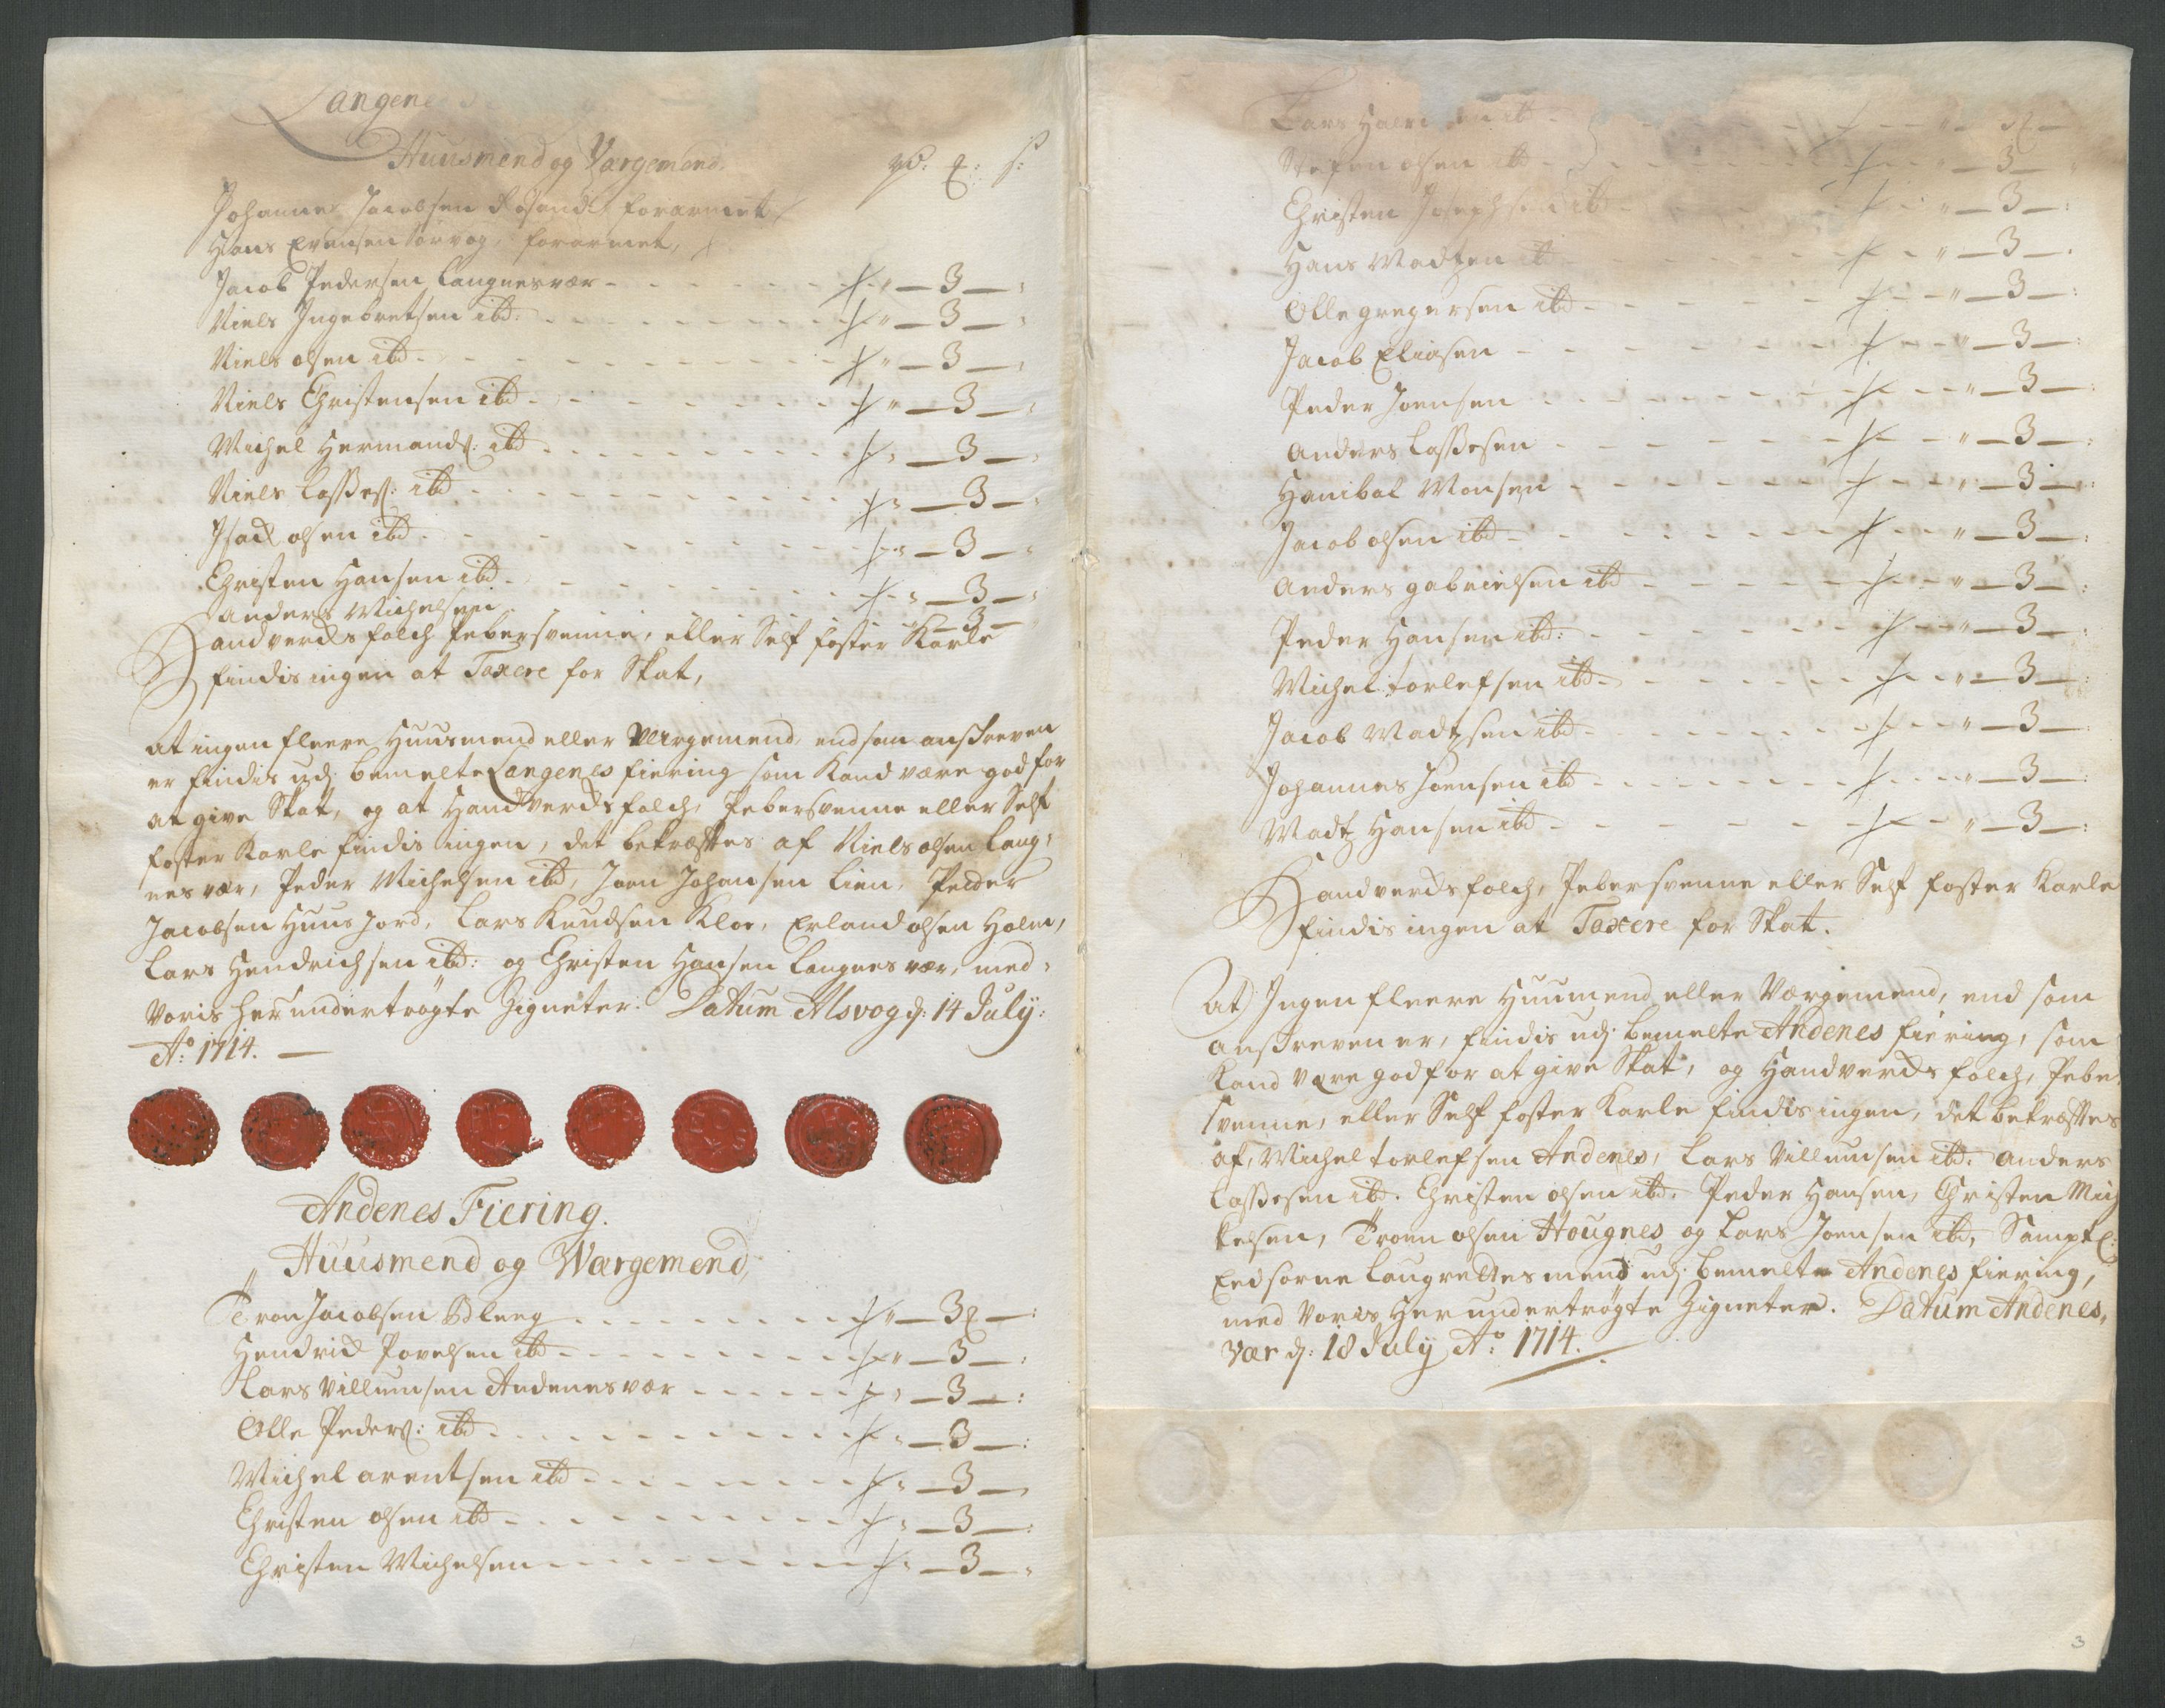 Langenes
Huusmend og Værgemend. rd: ℔: s:
Johannes Jacobsen forarmet
Hans Evensen Sørvog, forarmet,
Jacob Pedersen Langnesvær - - - " — 3 — :
Niels Ingebretsen ibd: - - - " — 3 — :
Niels olsen ibd - - - " — 3 — :
Niels Christensen ibd - - - " — 3 — :
Michel Hermands: ibd - - - " — 3 — :
Niels Lasses: ibd - - - " — 3 — :
Isack olsen ibd - - - " — 3 — :
Christen Hansen ibd - - - " — 3 — :
Anders Michelsen - 3 —
Handvercksfolch Pebersvenne, eller Self foster Karle
findis ingen at Taxere for Skat,
at ingen fleere Huusmend eller Værgemend, end som anskreven
er findis udj bemelte Langenes fiering som kand være god for
at give Skat, og at Handverdsfolch, Pebersvenne eller Self
foster Karle findis ingen, det bekræfftes af Niels olsen Lang,
nes vær, Peder Michelsen ibd, Joen Johansen Lien, Peder
Jacobsen Huus Jord, Lars Knudsen Kloe, Erland olsen Holm,
Lars Hendrichsen ibd: og Christen Hansen Langnesvær, med
voris her undertrøgte Zigneter. Datum Alsvog d: 14 July:
Ao: 1714. —
Andenes Fiering.
Huusmend og Wærgemend,
Tron Jacobsen Bleeg - - - " — 3 — :
Hendrick Povelsen ibd - - - " — 3 — :
Lars Villumsen Andenesvær - - - " — 3 — :
Olle Peders: ibd - - - " — 3 — :
Michel arentsen ibd - - - " — 3 — :
Christen olsen ibd - - - " — 3 — :
Christen Michelsen - - - " — 3 — :
Lars ibd - - -
Stefen olsen ibd - - - " — 3 —
Christen Josephsen ibd - - - " — 3 — :
Hans Madtzen ibd - - - " — 3 — :
Olle gregersen ibd - - - " — 3 — :
Jacob Eliasen - - - " — 3 — :
Peder Joensen - - - " — 3 — :
Anders Lassesen - - - " — 3 — :
Hanibal Monsen - - - " — 3 — :
Jacob olsen ibd - - - " — 3 — :
Anders gabrielsen ibd - - - " — 3 — :
Peder Hansen ibd: - - - " — 3 — :
Michel torlefsen ibd - - - " — 3 — :
Jacob Madtzsen ibd - - - " — 3 — :
Johannes Joensen ibd - - - " — 3 — :
Madtz Hansen ibd - - - " — 3 — :
Handverdsfolch, Pebersvenne eller Self foster Karle
findis ingen at Taxere for Skat.
At Ingen fleere Huumend eller Værgemend, end som
anskreven er, findis udj bemelte Andenes fiering, som
kand være god for at give Skat, og Handverdsfolch, Pebe,
svenne, eller Self foster Karle findis ingen, det bekræfftes
af, Michel torlefsen Andenes, Lars Villumsen ibd. Anders
Lassesen ibd. Christen olsen ibd. Peder Hansen, Christen Mich
kelsen, Troen olsen Hougnes og Lars Joensen ibd, Samptl:
Eedsorne laugrettes mend udj bemelte Andenes fiering,
med voris Her undertrøgte Zigneter. Datum Andenes,
Vær d: 18 July Ao: 1714.
3